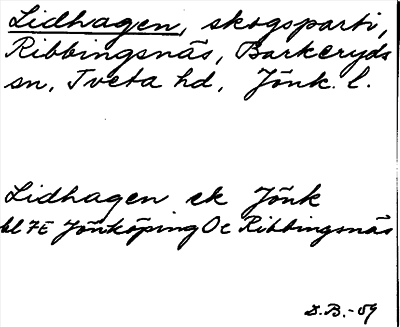 Lidhagen, skogsparti,
Ribbingsnäs, Barkeryds
sn, Tveta hd, Jönk. l.
Lidhagen ek Jönk
bl 7E Jönköping Oc Ribbingsnäs
S.B.-59